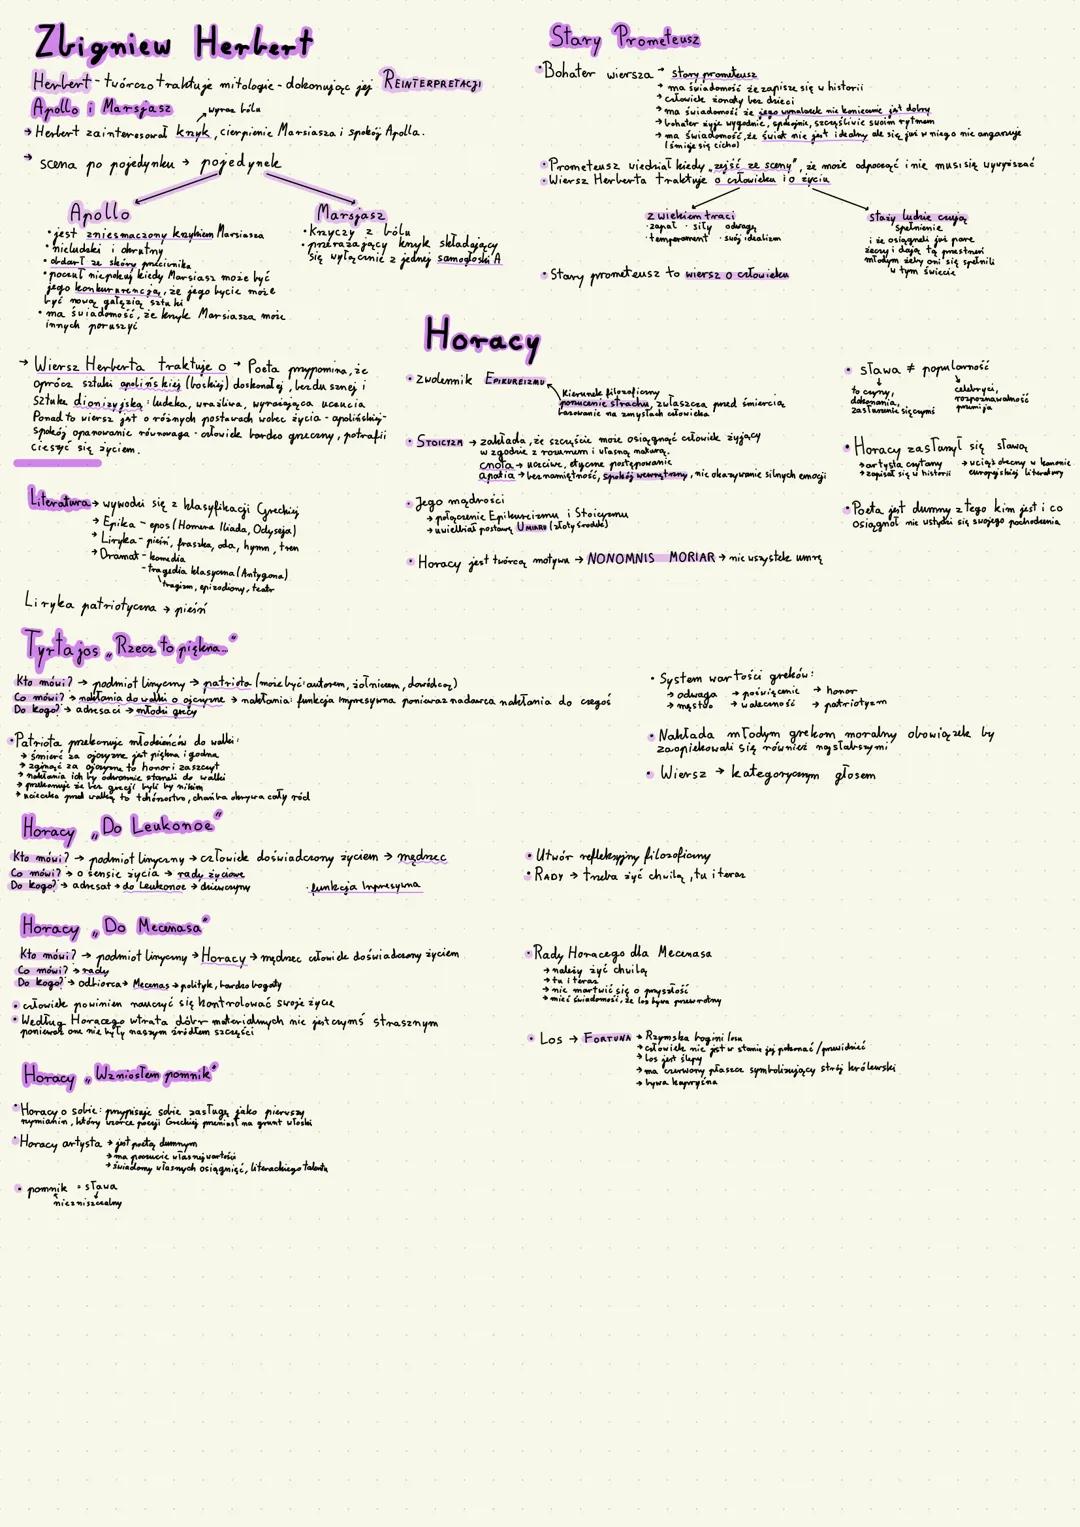 Zbigniew Herbert
Herbert - twórczo traktuje mitologie - dokonując jej REINTERPRETACJI
Apollo i Marsjasz
wyraz bólu
→ Herbert zainteresował krzyk, cierpienie Marsiasza i spokój Apolla.
→ scena po pojedynku → pojedynek
Apollo
• jest zniesmaczony krzykiem Marsiasza
• nieludzki i okrutny
• obdarł ze skóry przeciwnika
• poczuł niepokój kiedy Marsiasz może być
jego konkurencją, że jego bycie może
być nową gałęzią sztuki
• ma świadomość, że krzyk Marsiasza może
innych poruszyć
Marsjasz
• Krzyczy z bólu
• przerażający krzyk składający
się wyłącznie z jednej samogłoski A
→ Wiersz Herberta traktuje o → Poeta przypomina, że
oprócz sztuki apolińskiej (boskiej) doskonałej, bezdusznej i
sztuka dionizyjska: ludzka, wrażliwa, wyrażająca uczucia
Ponad to wiersz jest o różnych postawach wobec życia - apolińskiej -
spokój opanowanie równowaga - człowiek bardzo grzeczny, potrafi
cieszyć się życiem.
Literatura → wywodzi się z klasyfikacji Greckiej
→ Epika - epos (Homera Iliada, Odyseja)
→ Liryka - pieśń, fraszka, oda, hymn, tren
→ Dramat - komedia
- tragedia klasyczna (Antygona)
tragizm, epizodiony, teatr
Liryka patriotyczna → pieśń
Stary Prometeusz
• Bohater wiersza → stary prometeusz
→ ma świadomość że zapisze się w historii
→ człowiek żonaty bez dzieci
→ ma świadomość że jego wynalazek nie koniecznie jest dobry
→ bohater żyje wygodnie, spokojnie, szczęśliwie swoim rytmem
→ ma świadomość, że świat nie jest idealny ale się już w niego nie angażuje
(śmieje się cicho)
• Prometeusz wiedział kiedy „zejść ze sceny", że może odpocząć i nie musi się wywyższać
• Wiersz Herberta traktuje o człowieku i o życiu
z wiekiem traci
• zapał • siły odwagę
• temperament • swój idealizm
starzy ludzie czują
spełnienie
i że osiągneli już pare
żeczy i dają tą przestrzeń
młodym żeby oni się spełnili
w tym świecie
• Stary prometeusz to wiersz o człowieku
Horacy
• zwolennik EPIKUREIZMU
Kierunek filozoficzny
porzucenie strachu, zwłaszcza przed śmiercią
bazowanie na zmysłach człowieka
• STOICYZM → zakłada, że szczęście może osiągnąć człowiek żyjący
w zgodzie z rozumem i własną naturą.
cnota → uczciwe, etyczne postępowanie
apatia → beznamiętność, spokój wewnętrzny, nie okazywanie silnych emocji
• Jego mądrości
→ połączenie Epikureizmu i Stoicyzmu
→ uwielbiał postawę UMIARU (złoty środek)
• Horacy jest twórcą motywu → NONOMNIS MORIAR → nie wszystek umrę
• sława ≠ popularność
to czyny,
dokonania,
zasłużenie się czymś
celebryci,
rozpoznawalność
przemija
• Horacy zasłynął się sławą
→ artysta czytany
→ zapisał się w historii
→ wciąż obecny w kanonie
europejskiej literatury
• Poeta jest dumny z tego kim jest i co
osiągnął nie wstydzi się swojego pochodzenia
Tyrtajos „Rzecz to piękna..."
Kto mówi? → podmiot liryczny → patriota (może być: autorem, żołnierzem, dowódcą)
Co mówi? → nakłania do walki o ojczyznę → nakłania: funkcja impresywna ponieważ nadawca nakłania do czegoś
Do kogo? → adresaci → młodzi grecy
• Patriota przekonuje młodzieńców do walki:
→ śmierć za ojczyznę jest piękna i godna
→ zginąć za ojczyznę to honor i zaszczyt
→ nakłania ich by odważnie staneli do walki
→ przekonuje że bez grecji byli by nikim
→ ucieczka przed walką to tchórzostwo, hańba okrywa cały ród
• System wartości greków:
→ odwaga → poświęcenie → honor
→ męstwo → waleczność → patriotyzm
• Nakłada młodym grekom moralny obowiązek by
zaopiekowali się również najsłabszymi
• Wiersz → kategorycznym głosem
Horacy „Do Leukonoe"
Kto mówi? → podmiot liryczny → człowiek doświadczony życiem → mędrzec
Co mówi? → o sensie życia → rady życiowe
Do kogo? → adresat → do Leukonoe → dziewczyny
• funkcja Impresywna
• Utwór refleksyjny filozoficzny
• RADY → trzeba żyć chwilą, tu i teraz
Horacy „Do Mecenasa"
Kto mówi? → podmiot liryczny → Horacy → mędrzec człowiek doświadczony życiem
Co mówi? → rady
Do kogo? → odbiorca → Mecenas → polityk, bardzo bogaty
• człowiek powinien nauczyć się kontrolować swoje życie
• Według Horacego utrata dóbr materialnych nie jest czymś strasznym
ponieważ one nie były naszym źródłem szczęści
• Rady Horacego dla Mecenasa
→ należy żyć chwilą
→ tu i teraz
→ nie martwić się o przyszłość
→ mieć świadomość, że los bywa przewrotny
• Los → FORTUNA → Rzymska bogini losu
→ człowiek nie jest w stanie jej pokonać / przewidzieć
→ los jest ślepy
→ ma czerwony płaszcz symbolizujący strój królewski
→ bywa kapryśna
Horacy „Wzniosłem pomnik"
• Horacy o sobie: przypisuje sobie zasługę jako pierwszy
rzymianin, który wzorce poezji Greckiej przeniósł na grunt włoski
• Horacy artysta → jest poetą dumnym
→ ma poczucie własnej wartości
→ świadomy własnych osiągnięć, literackiego talentu
• pomnik = sława
niezniszczalny